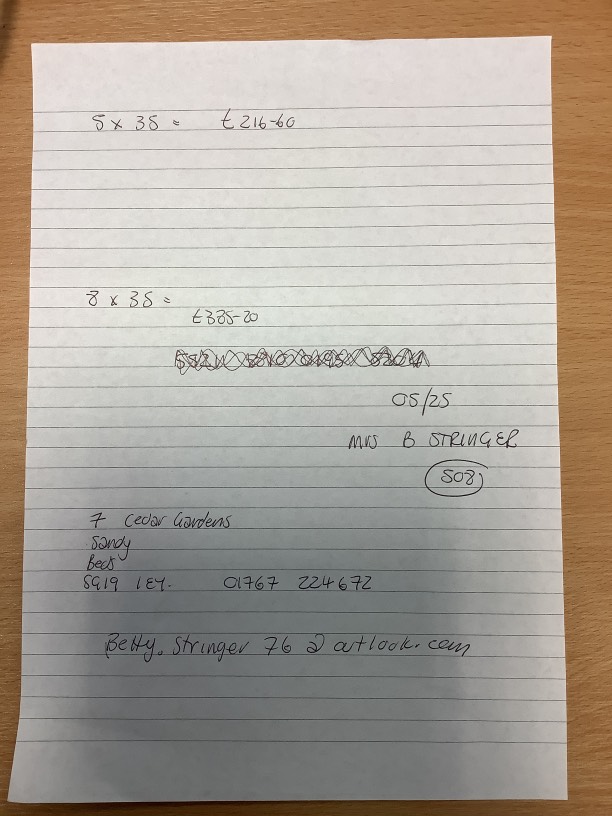 5 x 35 = £216-60
8 x 35 =
£335-20
05/25
Mrs B STRINGER
508
7 Cedar Gardens
Sandy
Beds
SG19 1EY.
01767 224672
Betty.Stringer76@outlook.com